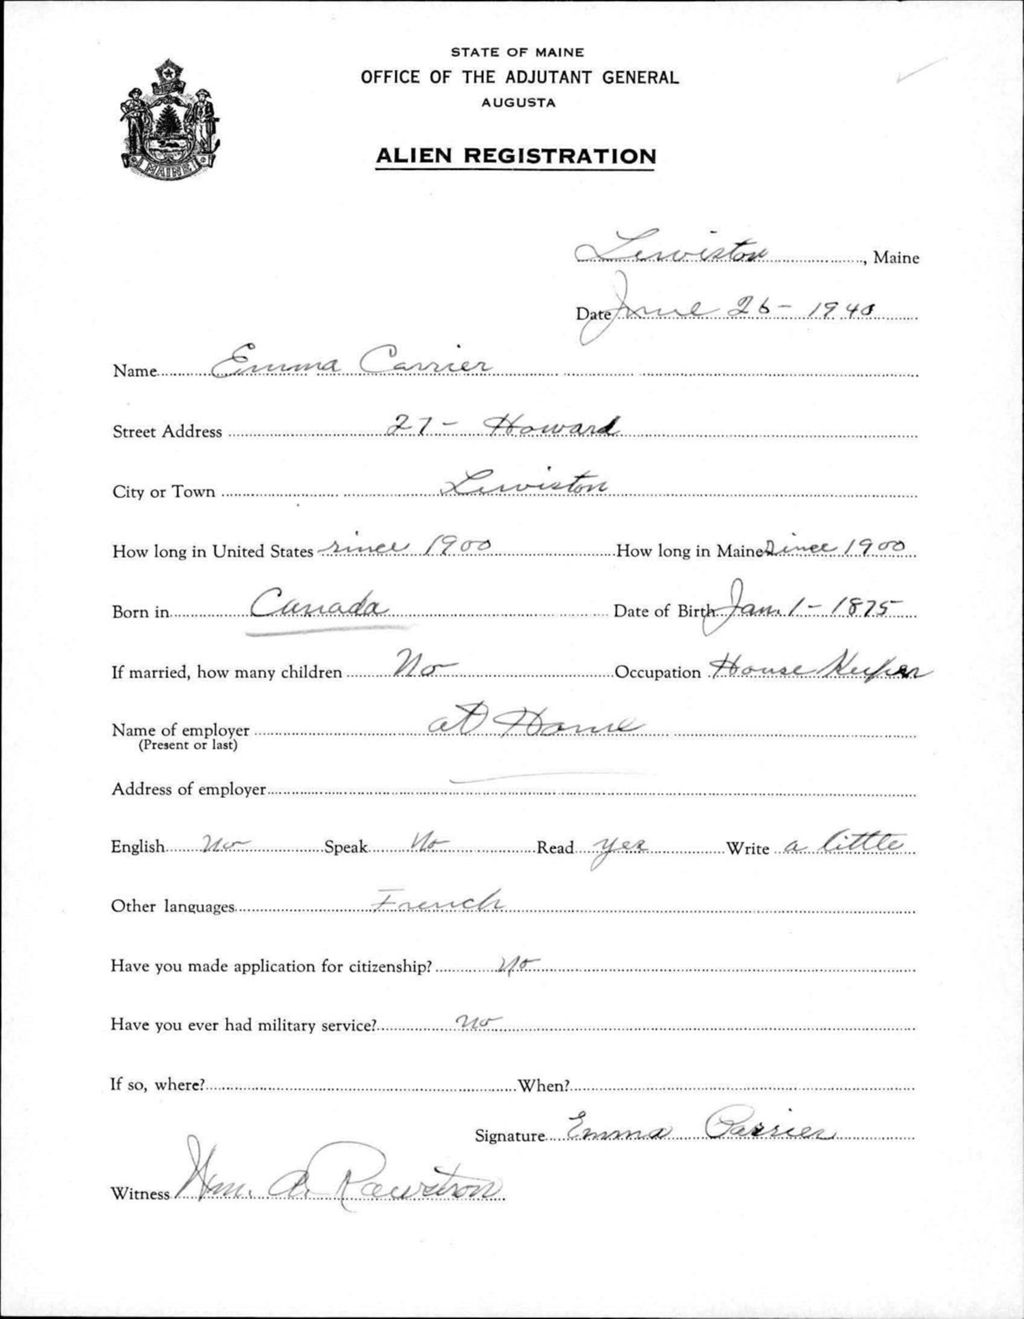 STATE OF MAINE
OFFICE OF THE ADJUTANT GENERAL
AUGUSTA
ALIEN REGISTRATION
MAINE
Lewiston, Maine
Date June 26 - 1940
Name Emma Carrier
Street Address 27 - Howard
City or Town Lewiston
How long in United States since 1900 How long in Maine Since 1900
Born in Canada Date of Birth Jan. 1 - 1875
If married, how many children No Occupation House Keeper
Name of employer at Home
(Present or last)
Address of employer
English No Speak No Read yes Write a little
Other languages French
Have you made application for citizenship? No
Have you ever had military service? no
If so, where? When?
Signature Emma Carrier
Witness Wm. A. Rawstron